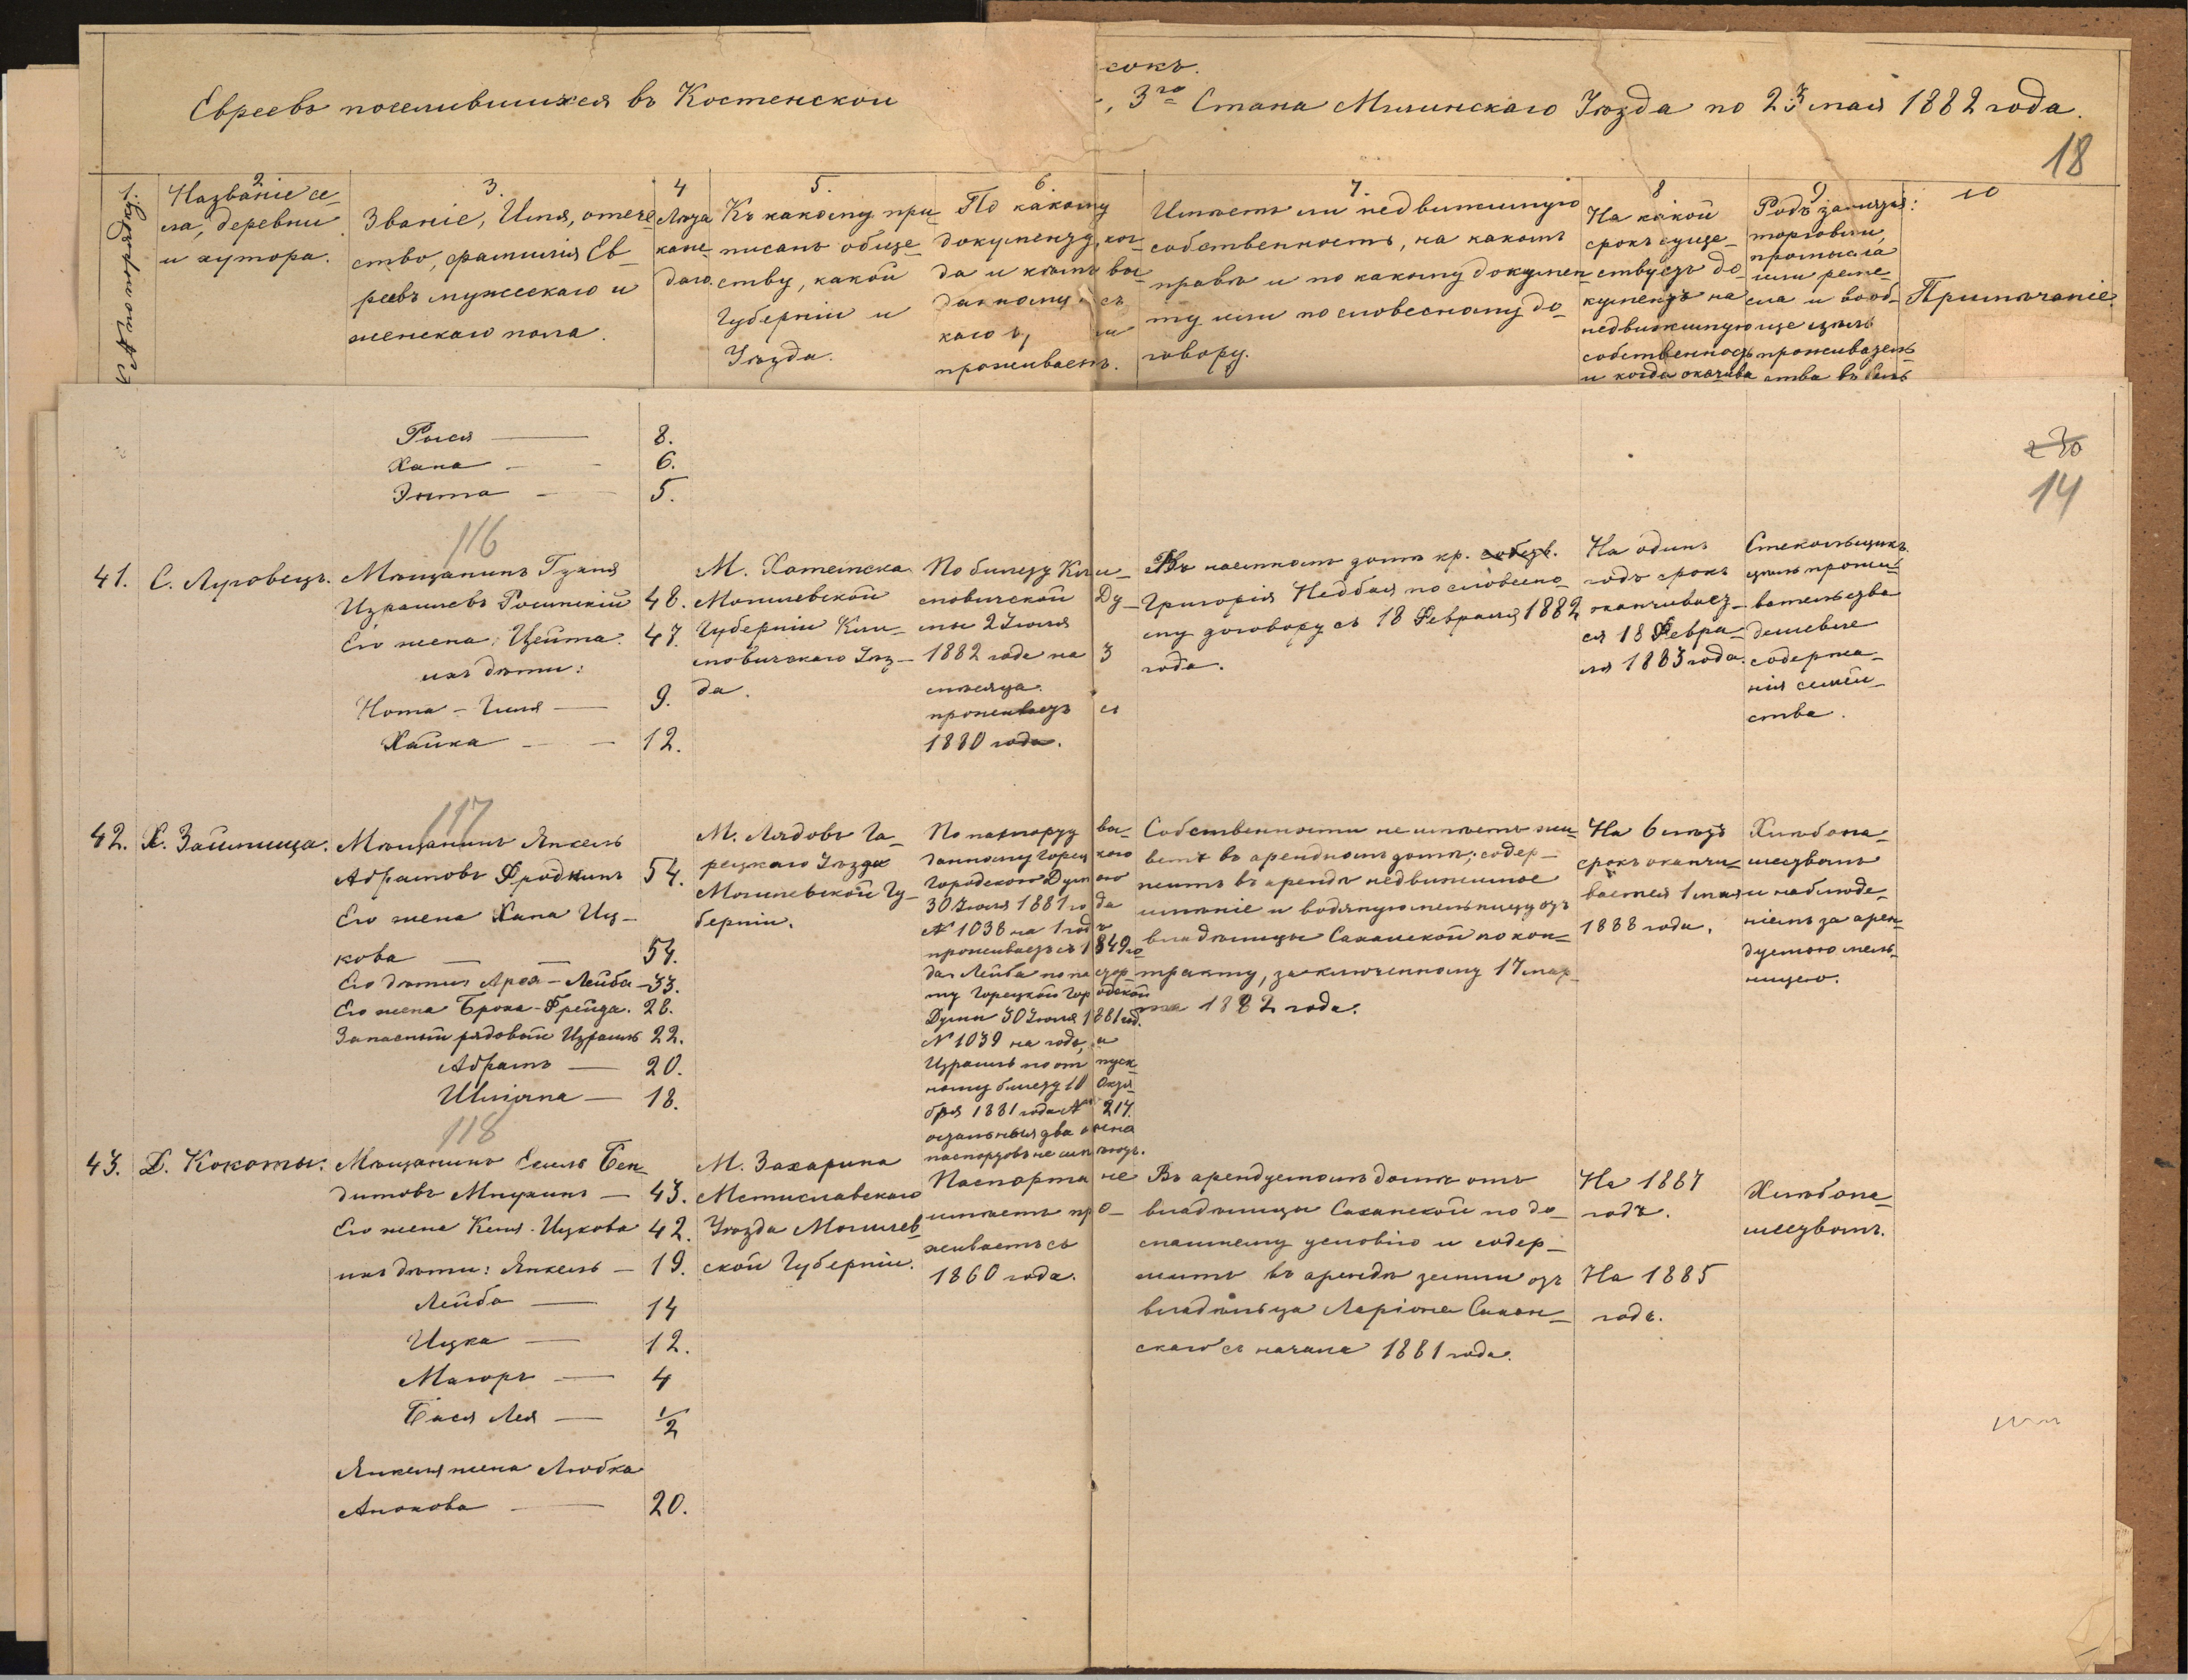 сокъ.
Евреевъ поселившихся въ Костенской
3го Стана Мглинскаго Уѣзда по 23 мая 1882 года.
18
1.
№ по порядку
2
Названіе се-
ла, деревни
и хутора.
3.
Званіе, Имя, отече
ство, фамилія Ев-
реевъ мужескаго и
женскаго пола.
4
Лѣта
каж-
даго.
5.
Къ какому при
писанъ обще-
ству, какой
Губерніи и
Уѣзда.
6.
По какому
документу, ког-
да и кѣмъ вы-
данному съ
проживаетъ.
7.
Имѣетъ ли недвижимую
собственность, на какомъ
правѣ и по какому докумен
ту или по словесному до-
говору.
8
На какой
срокъ суще-
ствуетъ до-
кументъ на
недвижимую
собственность
и когда
9
Родъ занятія:
торговли,
промысла
или реме-
сла и вооб-
ще цѣль
проживатель
ства въ
10
Примѣчаніе.
Рыся — 8.
Хана — 6.
5.
14
116
41. С. Луговецъ.
Мѣщанинъ
Израилевъ 48.
Его жена: Цейта. 47.
ихъ дѣти:
Нота - Гиля — 9.
Хайка — 12.
М. Хотимска
Могилевской
Губерніи Кли-
мовичскаго Уѣз-
да.
По билету Кли-
мовичской Ду-
мы 2 Іюля
1882 года на 3
мѣсяца.
проживаетъ съ
1880 года.
Въ наемномъ домѣ кр.
Григорія Недбая по словесно-
му договору съ 18 Февраля 1882
года.
На одинъ
годъ срокъ
оканчивает-
ся 18 Февра-
ля 1883 года.
Стекольщикъ.
цѣль прожи-
вательства
дешевле
содержа-
нія семей-
ства.
117
42. Х. Займища.
Мѣщанинъ Янкель
Абрамовъ Фрадкинъ 54.
Его жена Хана Иц-
кова — — 54.
Его дѣти: Арон - Лейба - 33.
Его жена Броха - Фрейда. 28.
Запасный рядовой Израиль 22.
Абрамъ — 20.
Шліома — 18.
М. Лядовъ Го-
рецкаго Уѣзда
Могилевской Гу-
берніи.
По паспорту вы-
данному Горецкого
Городского Думою
30 Іюля 1881 года
№ 1038 на 1 годъ
проживаетъ съ 1849 го
да. Лейба по паспор
ту Горецкой Городской
Думы 30 Іюля 1881 год.
№ 1039 на годъ, и
Израиль по отпуск
ному билету 10 Октя-
бря 1881 года № 217.
остальныя два члена
паспортовъ не имѣютъ.
Собственности не имѣетъ жи-
ветъ въ арендномъ домѣ; содер-
житъ въ арендѣ недвижимое
имѣніе и водяную мельницу отъ
владѣлицы Саханской по кон-
тракту, заключенному 17 мар
та 1882 года.
На 6 лѣтъ
срокъ оканчи-
вается 1 мая
1888 года.
Хлѣбопа-
шествомъ
и наблюде-
ніемъ за арен-
дуемою мель-
ницею.
118
43. Д. Кокоты.
Мѣщанинъ Есиль Бен
— 43.
Его жена Кеня Ицкова 42.
ихъ дѣти: Янкель — 19.
Лейба — 14
Ицка — 12.
4
Бася Лея — 1/2
Янкеля жена Любка
20.
М. Захарина
Мстиславскаго
Уѣзда Могилев
ской Губерніи.
Паспорта не
имѣетъ про-
живаетъ съ
1860 года.
Въ арендуемомъ домѣ отъ
владѣлицы Саханской по до-
машнему условію и содер-
житъ въ арендѣ земли отъ
владѣльца Ларіона Сахан-
скаго съ начала 1881 года.
На 1887
годъ.
На 1885
годъ.
Хлѣбопа-
шествомъ.